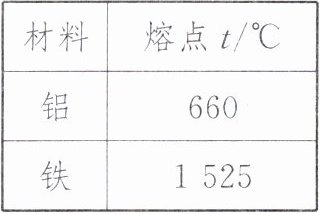 材料 熔点 t/℃
铝 660
铁 1 525